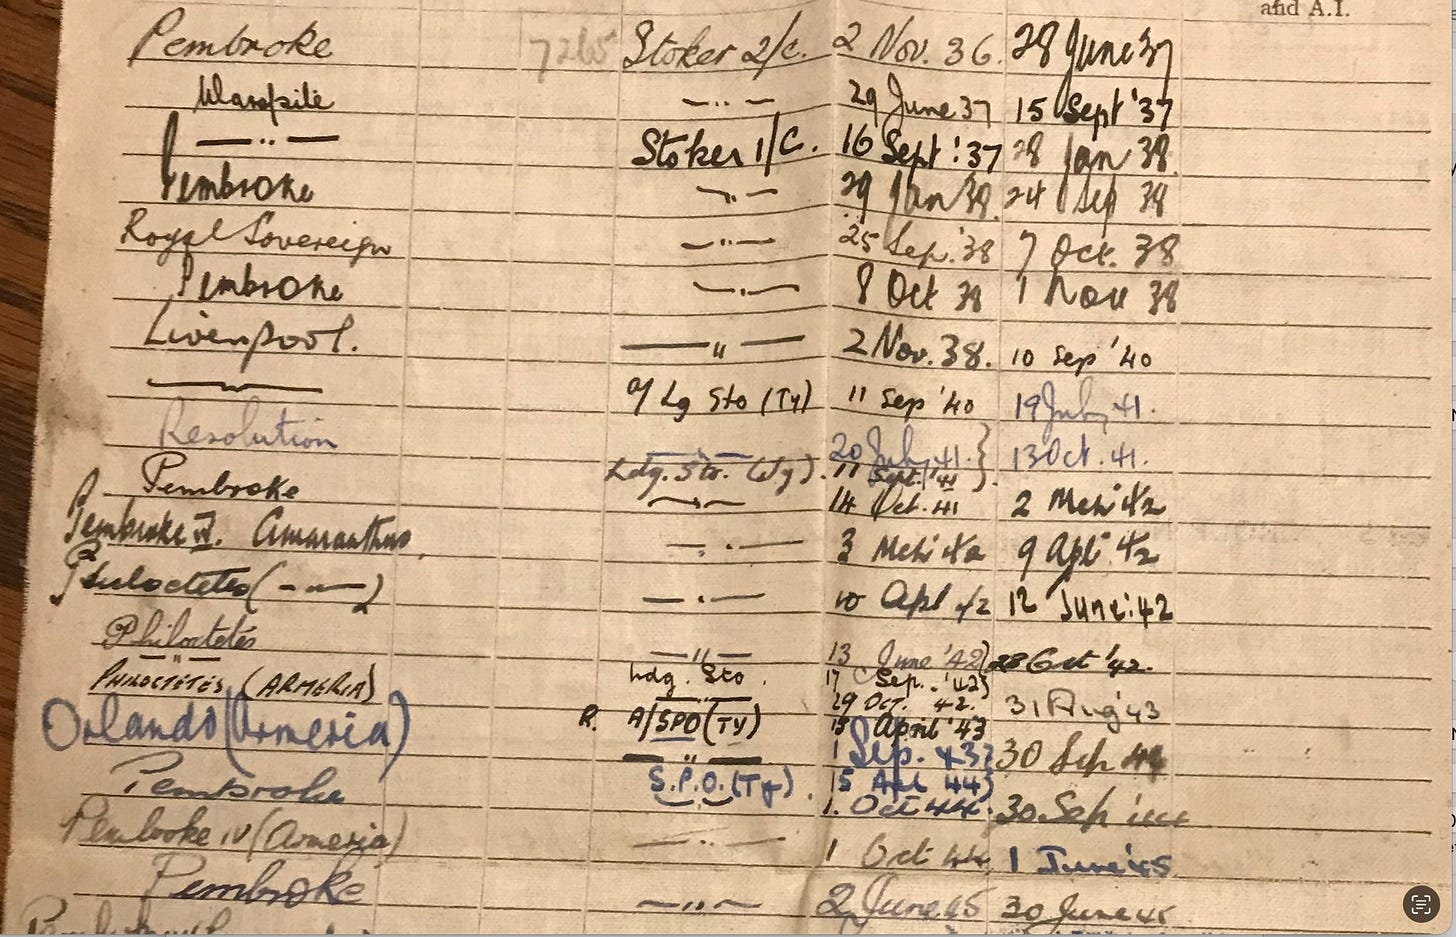 and A.I.
Pembroke 7265 Stoker 2/c. 2 Nov. 36. 28 June 37
Warspite —〃— 29 June 37 15 Sept '37
—〃— Stoker 1/C. 16 Sept '37 28 Jan 38.
Pembroke —〃— 29 Jan 38. 24 Sep 38
Royal Sovereign —〃— 25 Sep. '38 7 Oct. 38
Pembroke —〃— 8 Oct 38 1 Nov 38
Liverpool. —〃— 2 Nov. 38. 10 Sep '40
—〃— A/ Lg Sto (Ty) 11 Sep '40 19 July, 41.
Resolution —〃— 20 July, 41. } 13 Oct. 41.
Ldg. Sto. (Ty). 11 Sept. '41 }
Pembroke —〃— 14 Oct. 41 2 Mch 42
Pembroke IV. Amaranthus. —〃— 3 Mch 42 9 Apl 42
Philoctetes (—〃—) —〃— 10 Apl 42 12 June '42
Philoctetes —〃— 13 June '42 } 28 Oct '42.
—〃— Ldg. Sto. 17 Sep. '42 }
PHILOCTETES (ARMERIA) —〃— 29 Oct. 42. 31 Aug 43
R. A/SPO (TY) 15 April '43
Orlando (Armeria) —〃— 1 Sep. 43 } 30 Sep 44
S.P.O. (Ty). 15 Apl 44 }
Pembroke 1. Oct 44. 30 Sep
Pembroke IV (Armeria) —〃— 1 Oct 44 1 June '45
Pembroke —〃— 2 June 45 30 June 45